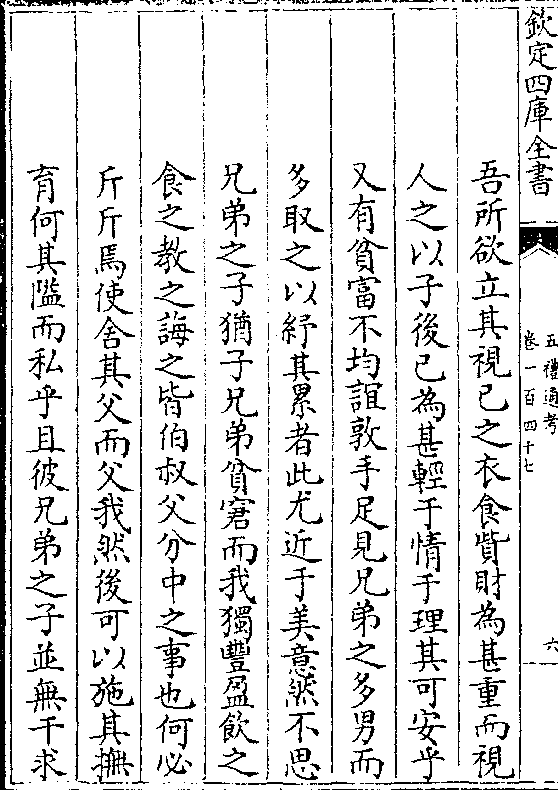 欽定四庫全書
五禮通考
卷一百四十七
六
吾所欲立其視己之衣食貲財為甚重而視
人之以子後己為甚輕于情于理其可安乎
又有貧富不均誼敦手足見兄弟之多男而
多取之以紓其累者此尤近于美意然不思
兄弟之子猶子兄弟貧窘而我獨豐盈飲之
食之教之誨之皆伯叔父分中之事也何必
斤斤焉使舍其父而父我然後可以施其撫
育何其隘而私乎且彼兄弟之子並無干求